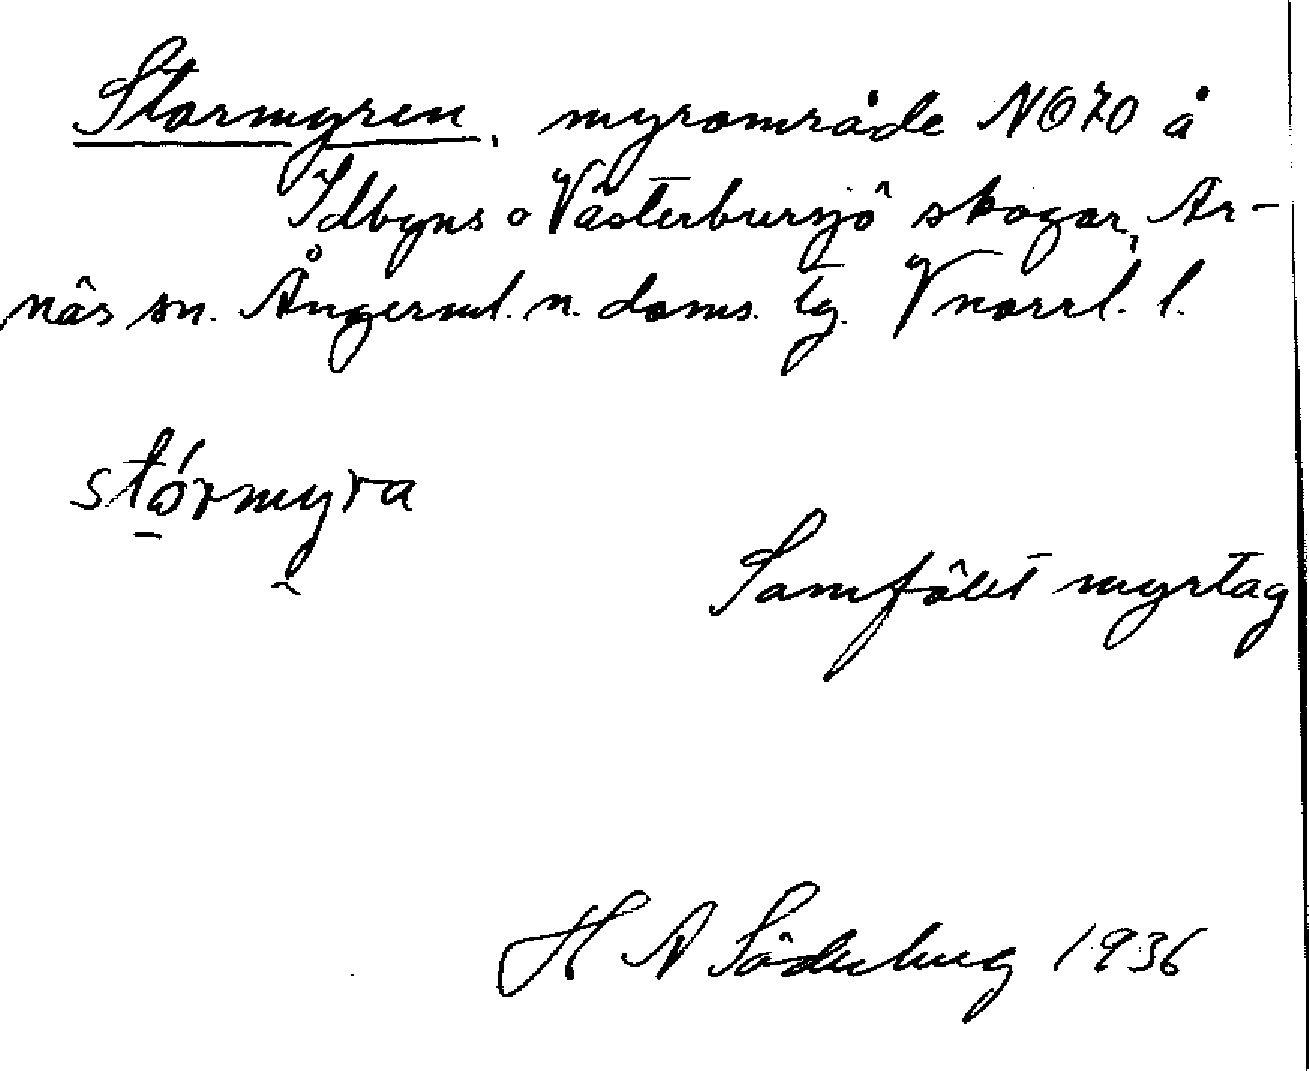 Stormyren, myrområde NO70 å
Idbyns o Västerbursjö skogar, Ar-
näs sn. Ångerml. n. doms. lg. Vnorrl. l.
stórmyra
Samfällt myrtag
H A Söderberg 1936